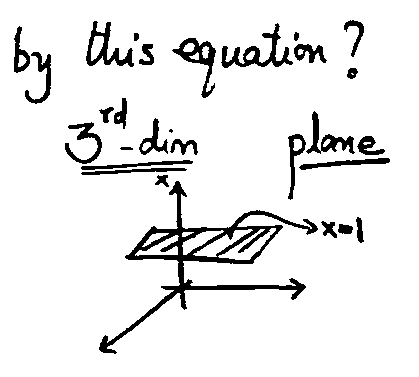 by this equation?
3rd-dim plane
x
x=1